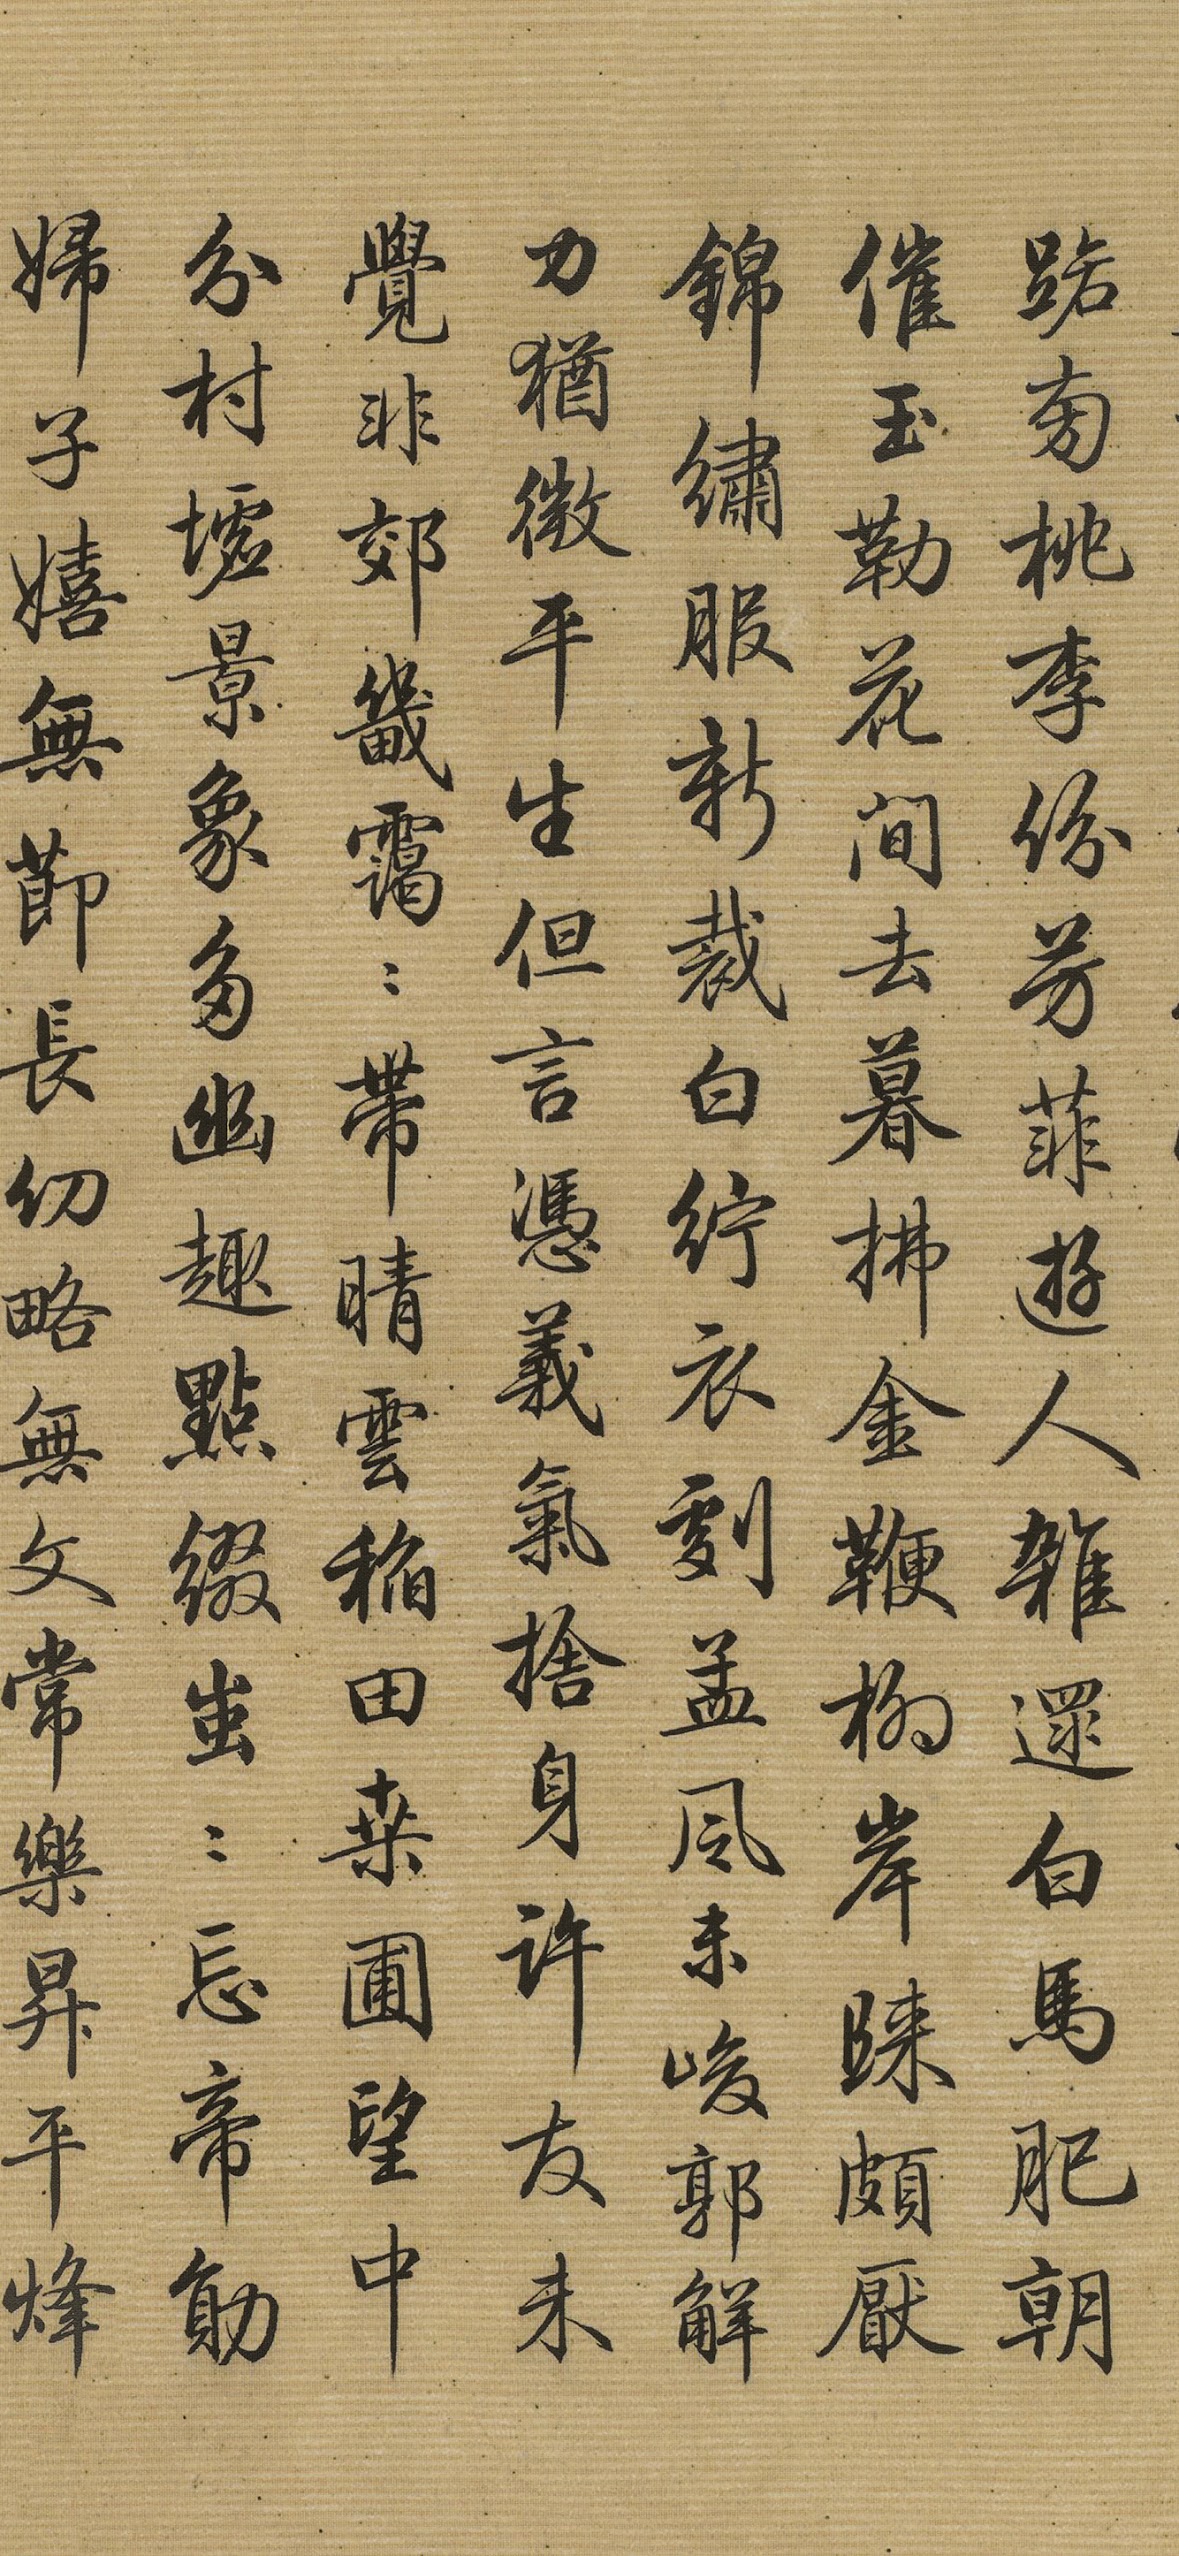 踞菊桃李份芳菲遊人雜還白馬肥朝
催玉勒花间去暮拂金鞭柳岸睐頗厭
錦繡服新裁白紵衣劇孟风未峻郭解
力猶微平生但言憑義氣捨身許友未
覺非郊畿靄〻帶晴雲稻田桒圃望中
分村墟景象多幽趣點缀蚩〻忘帝勛
婦子嬉無莭長幼略無文常樂昇平烽